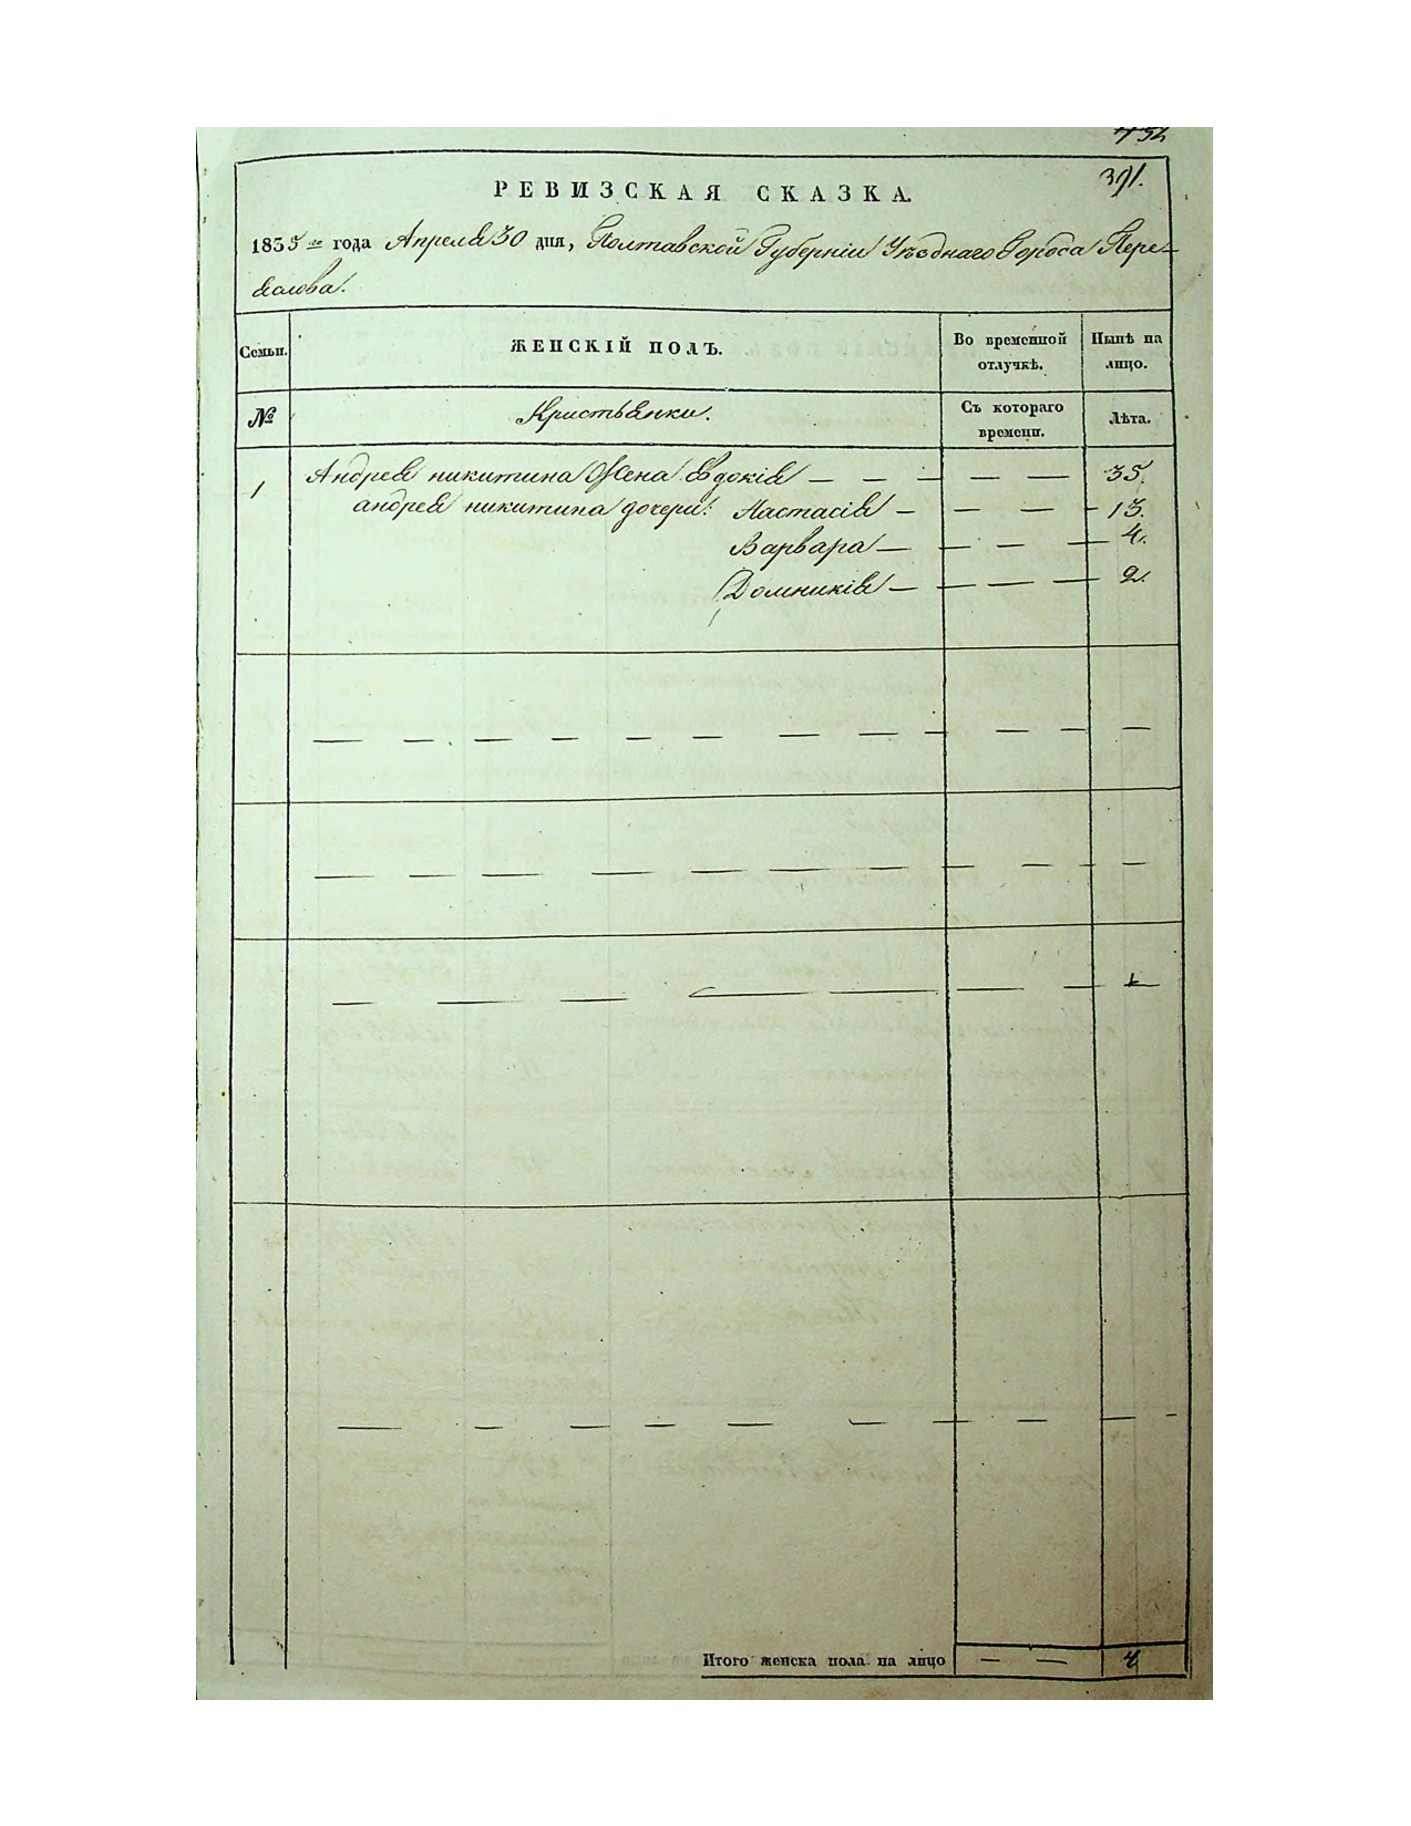 391.
РЕВИЗСКАЯ СКАЗКА.
1835 го года Апреля 30 дня, Полтавской Губерніи Уѣзднаго Города Пере-
яслова.
Семьи. ЖЕНСКІЙ ПОЛЪ. Во временной отлучкѣ. Нынѣ на лицо.
№ Кристьянки. Съ котораго времени. Лѣта.
1 Андрея никитина Жена Евдокія — — — — — 35.
андрея никитина дочери: Настасія — — — — 13.
Варвара — — — — 4.
Домникія — — — — 2.
Итого женска пола на лицо — — 4